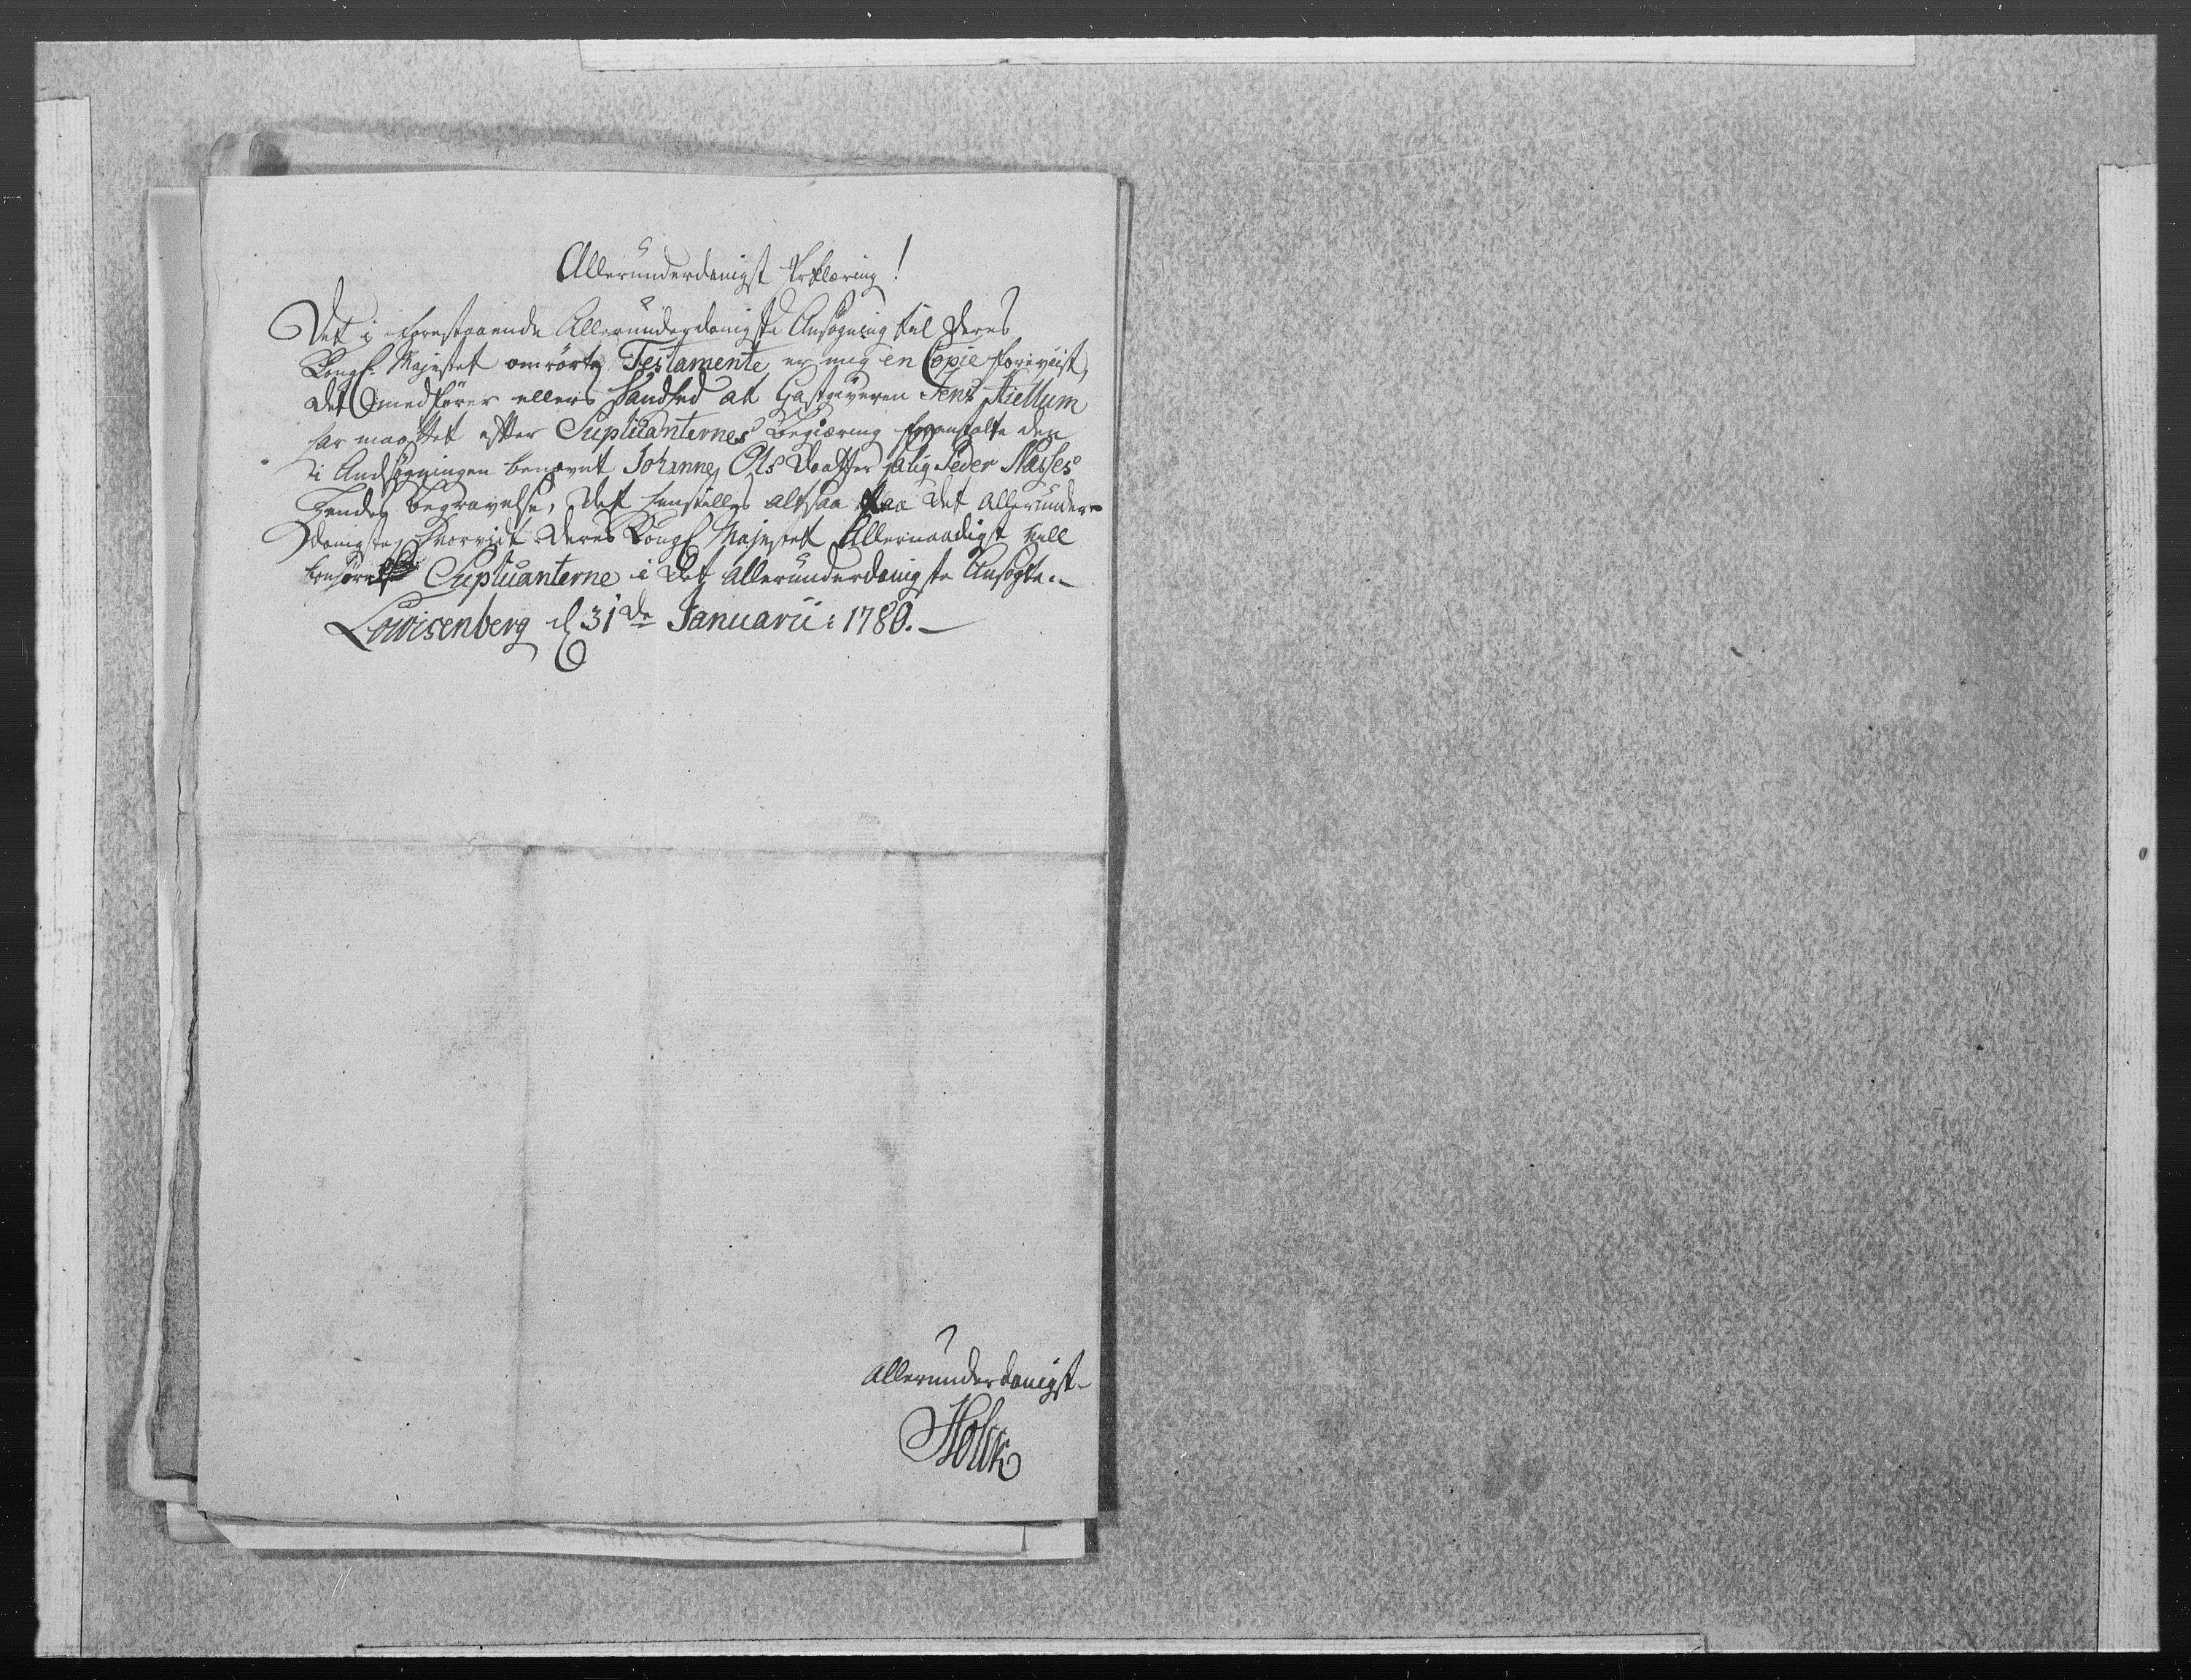 Allerunderdanigst Erklæring!
Det i forestaaende Allerunderdanigste Ansøgning til Deres
Kongl. Majestet omrørte Testamente, er mig en Copie foreviist,
det medfører ellers Sandhed at Gastgiveren Jens Kiellum
har maattet efter Supliianternes Begiæring foranstalte den
i Andsøgningen benævnt Johanne Ols Daatter salig Peder Nasses
Hendes Begravelse, det henstilles altsaa paa det allerunder-
danigste, hvorvidt Deres Kongl Majestet Allernaadigst vill
bønhøre Supliianterne i det allerunderdanigste Ansøgte.-
Lowisenberg d 31de Januarii: 1780.-
allerunderdanigst-
Holck